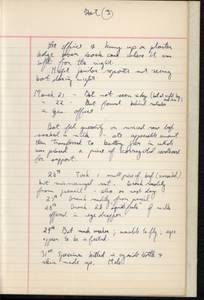 Bat (3)
the office & hung up on plaster
ledge near books and where it was
left for the night.
Night janitor reports not seeing
bat during night
March 21 - Bat not seen today (but at night by
" 22 - Bat found behind
in Gen. office
Bat fed quantity of minced raw beef
soaked in milk - ate appreciable amount
then transferred to battery jar in which
was placed a piece of corrugated cardboard
for support.
28th Took 1 small piece of beef (
but mismanaged it. Drank readily
from pencil - also on next day
29th drank readily from pencil
28th Drank 28 "squirtfuls" of milk
offered in eye dropper.
29th But much weaker; unable to fly; eyes
appear to be affected.
31st Specimen killed in cyanide bottle &
skin made up. (Male)